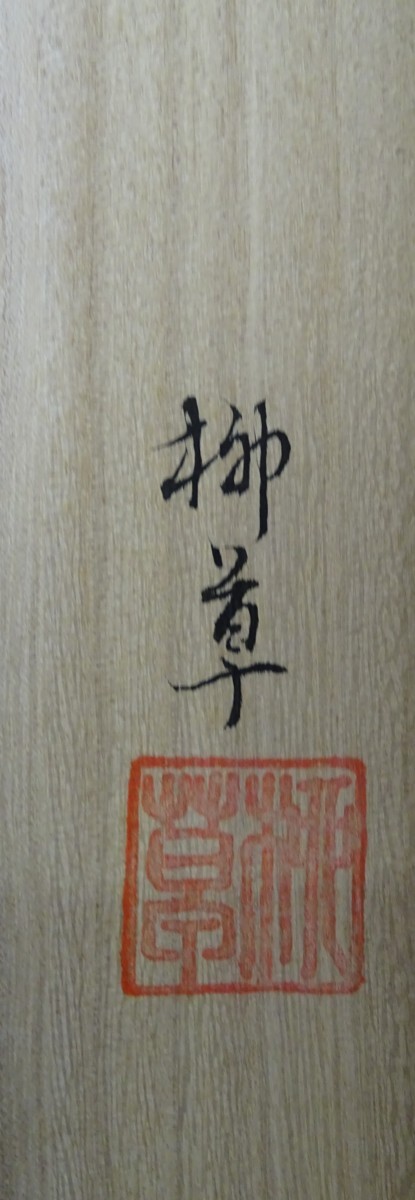 柳草
柳草